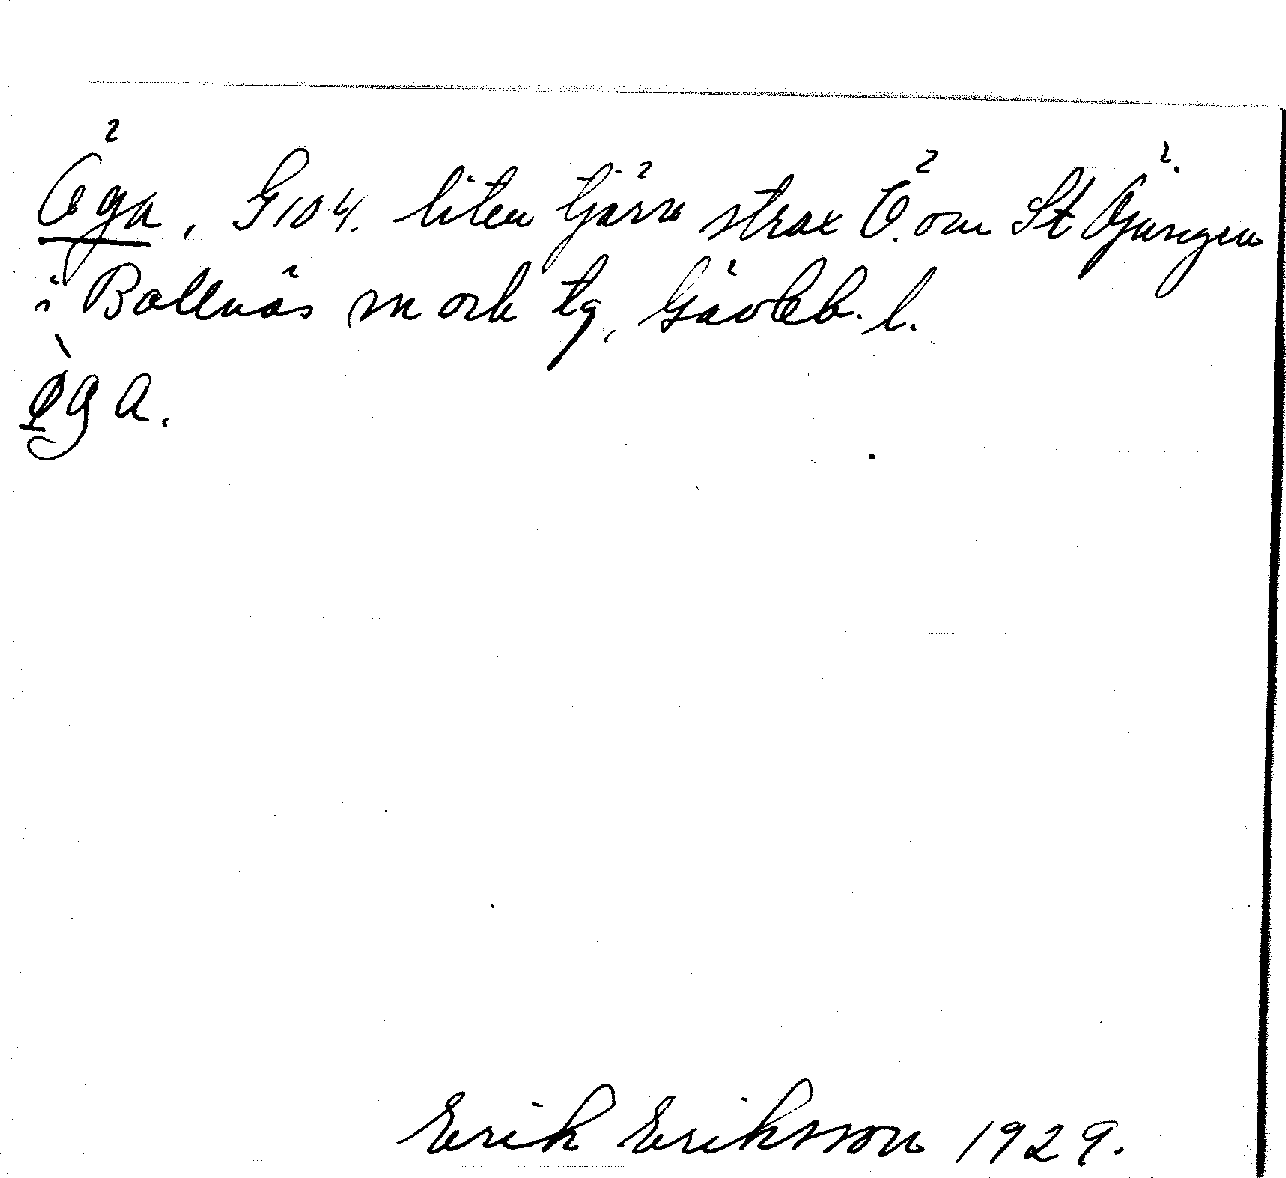 Öga, G 104. liten tjärn strax Ö. om St Öjungen
i Bollnäs sn och tg, Gävleb. l.
ø̀ga.
Erik Eriksson 1929.